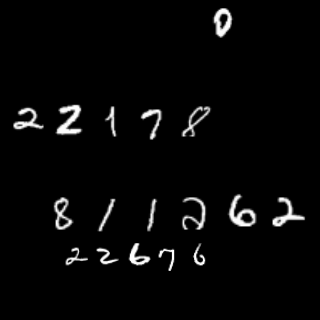 0
22178
811262
22676